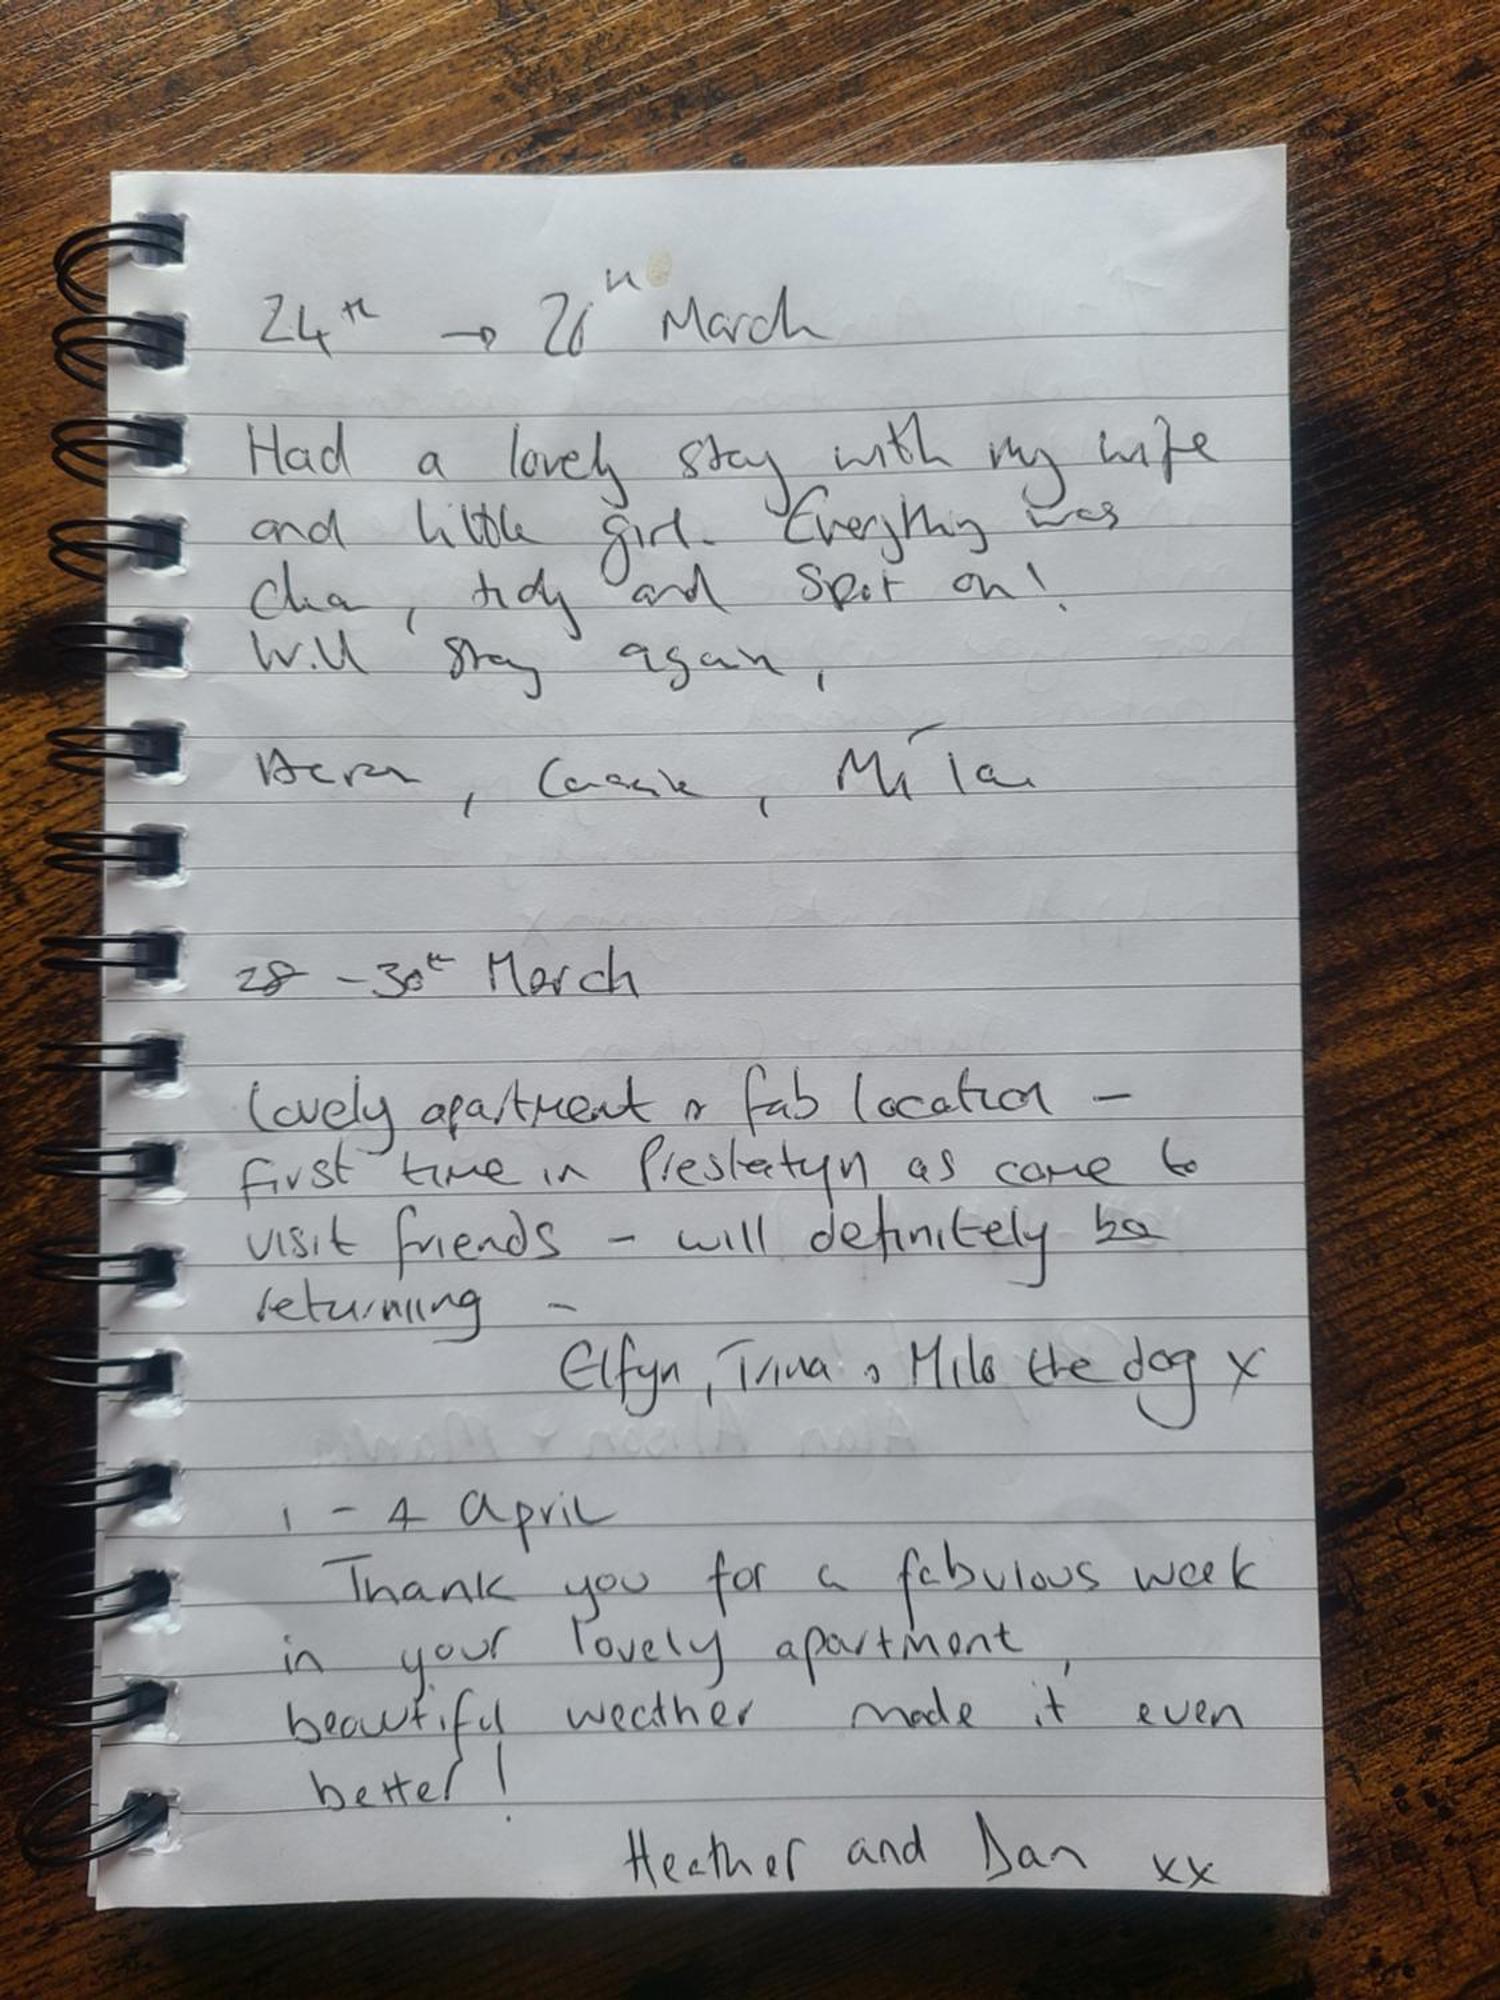 24th → 26th March
Had a lovely stay with my wife
and little girl. Everything was
clean, tidy and spot on!
Will stay again,
Mila
28 - 30th March
Lovely apartment & fab location -
first time in Prestatyn as came to
visit friends - will definitely be
returning -
Elfyn, Trina & Milo the dog x
1 - 4 April
Thank you for a fabulous week
in your lovely apartment,
beautiful weather made it even
better!
Heather and Dan xx